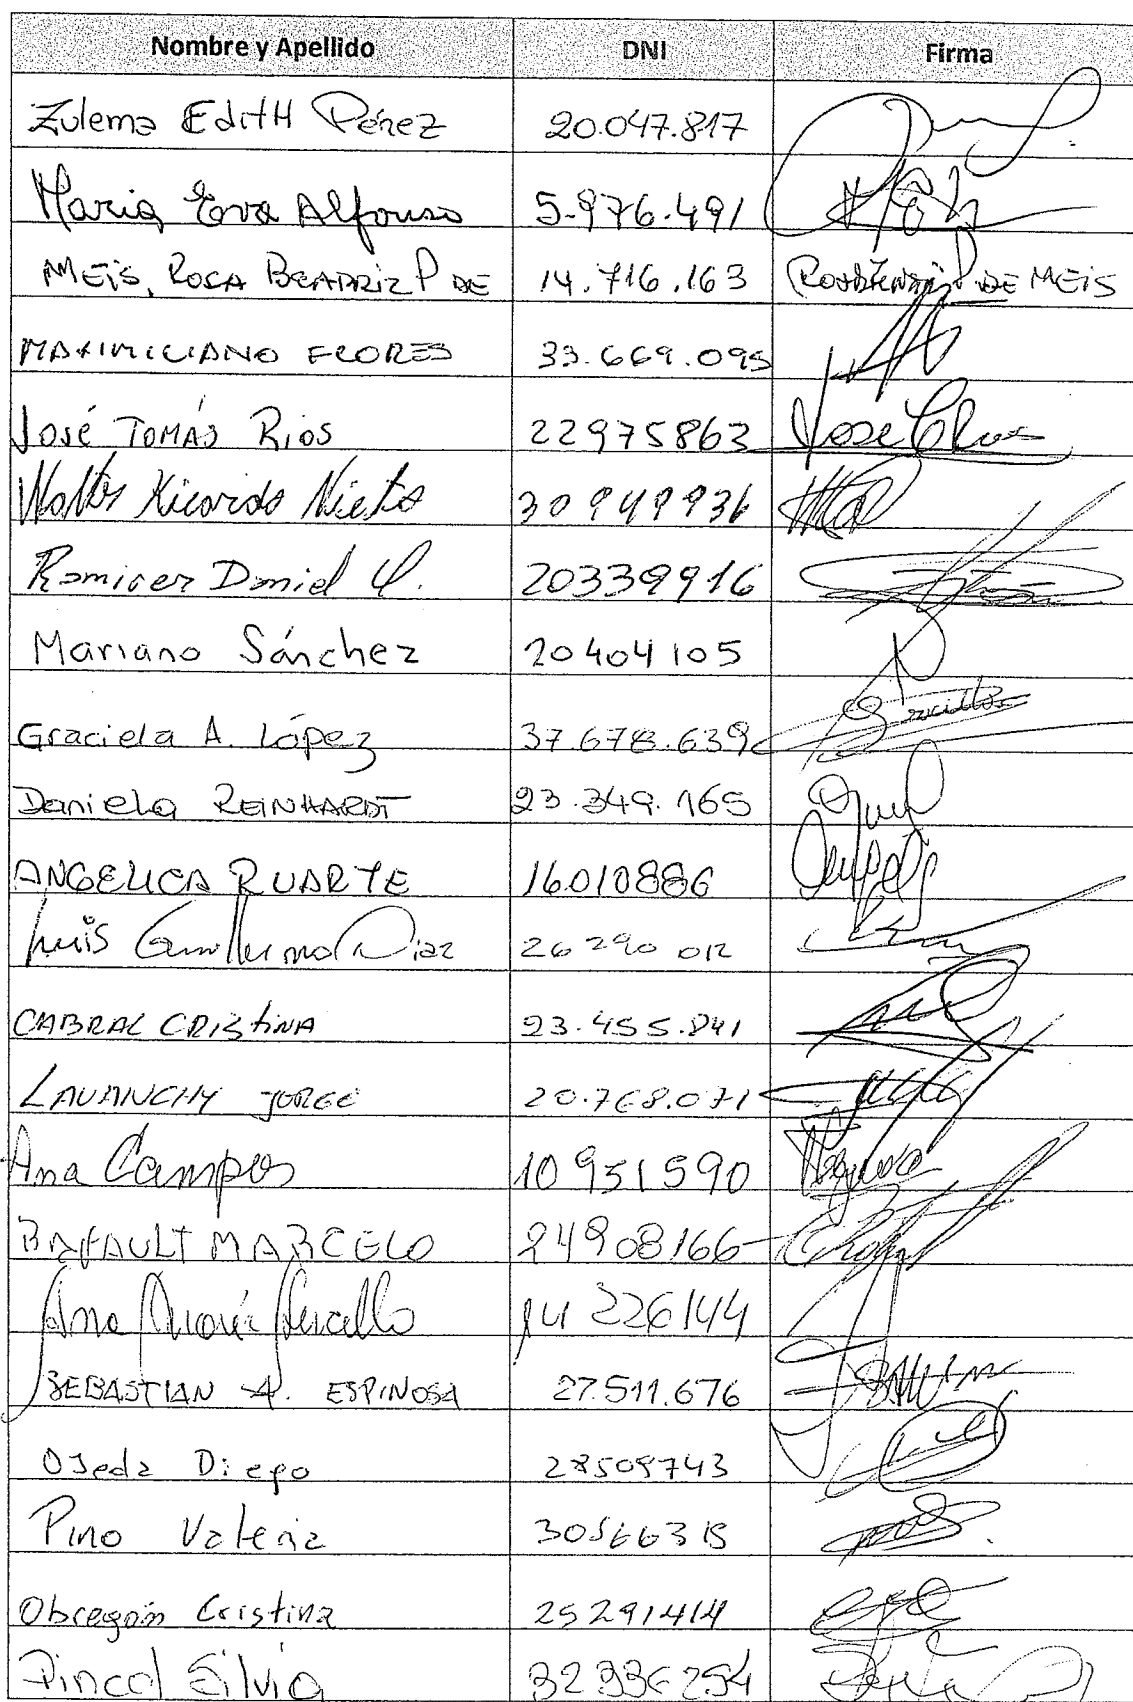 Nombre y Apellido DNI Firma
Zulema Edith Pérez 20.047.817
Maria Eva Alfonso 5.976.491
MEIS, ROSA BEATRIZ P DE 14.716.163 DE MEIS
MAXIMILIANO FLORES 33.669.095
José TOMÁS Rios 22975863 Jose
Ricardo Nieto 30949936
Ramirez Daniel 20339916
Mariano Sánchez 20404105
Graciela A. López 37.678.639
Daniela REINHARDT 23.349.165
ANGELICA RUARTE 16010886
Luis Guillermo Diaz 26290012
CABRAL CRISTINA 23.455.841
LAVANCHY JORGE 20.768.071
Ana Campos 10951590
MARCELO 24908166
Ana 14226144
SEBASTIAN A. ESPINOSA 27.511.676
OJeda Diego 28509743
Pino Valeria
Obregón Cristina 25291414
Pincol Silvia 32336254